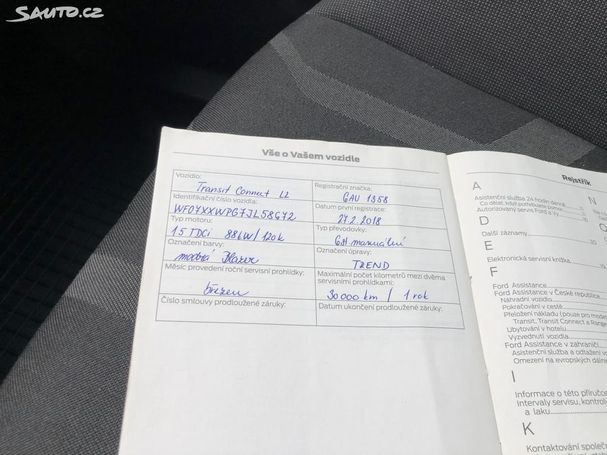 SAUTO.CZ
Vše o Vašem vozidle
Vozidlo:
Transit Connect L2
Identifikační číslo vozidla:
WF0YXXWPG7JL58G42
Typ motoru:
1.5 TDCi 88kW/120k
Označení barvy:
modrá Blazer
Měsíc provedení roční servisní prohlídky:
březen
Číslo smlouvy prodloužené záruky:
Registrační značka:
GAU 1358
Datum první registrace:
27.2.2018
Typ převodovky:
6st manuální
Označení úpravy:
TREND
Maximální počet kilometrů mezi dvěma
servisními prohlídkami:
30 000 km / 1 rok
Datum ukončení prodloužené záruky:
Rejstřík
A
Asistenční služba 24 hodin denně
Co dělat, když potřebujete pomoc
Autorizovaný servis Ford a Vy
D
Další záznamy
E
Elektronická servisní knížka
F
Ford Assistance
Ford Assistance v České republice
Náhradní vozidlo
Pokračování v cestě
Přeložení nákladu (pouze pro model
Transit, Transit Connect a Range
Ubytování v hotelu
Vyzvednutí vozidla
Ford Assistance v zahraničí
Asistenční služba a odtažení ve
Omezení na evropských dálni
I
Informace o této příručce
Intervaly servisu, kontroly
a laku
K
Kontaktování společno
N